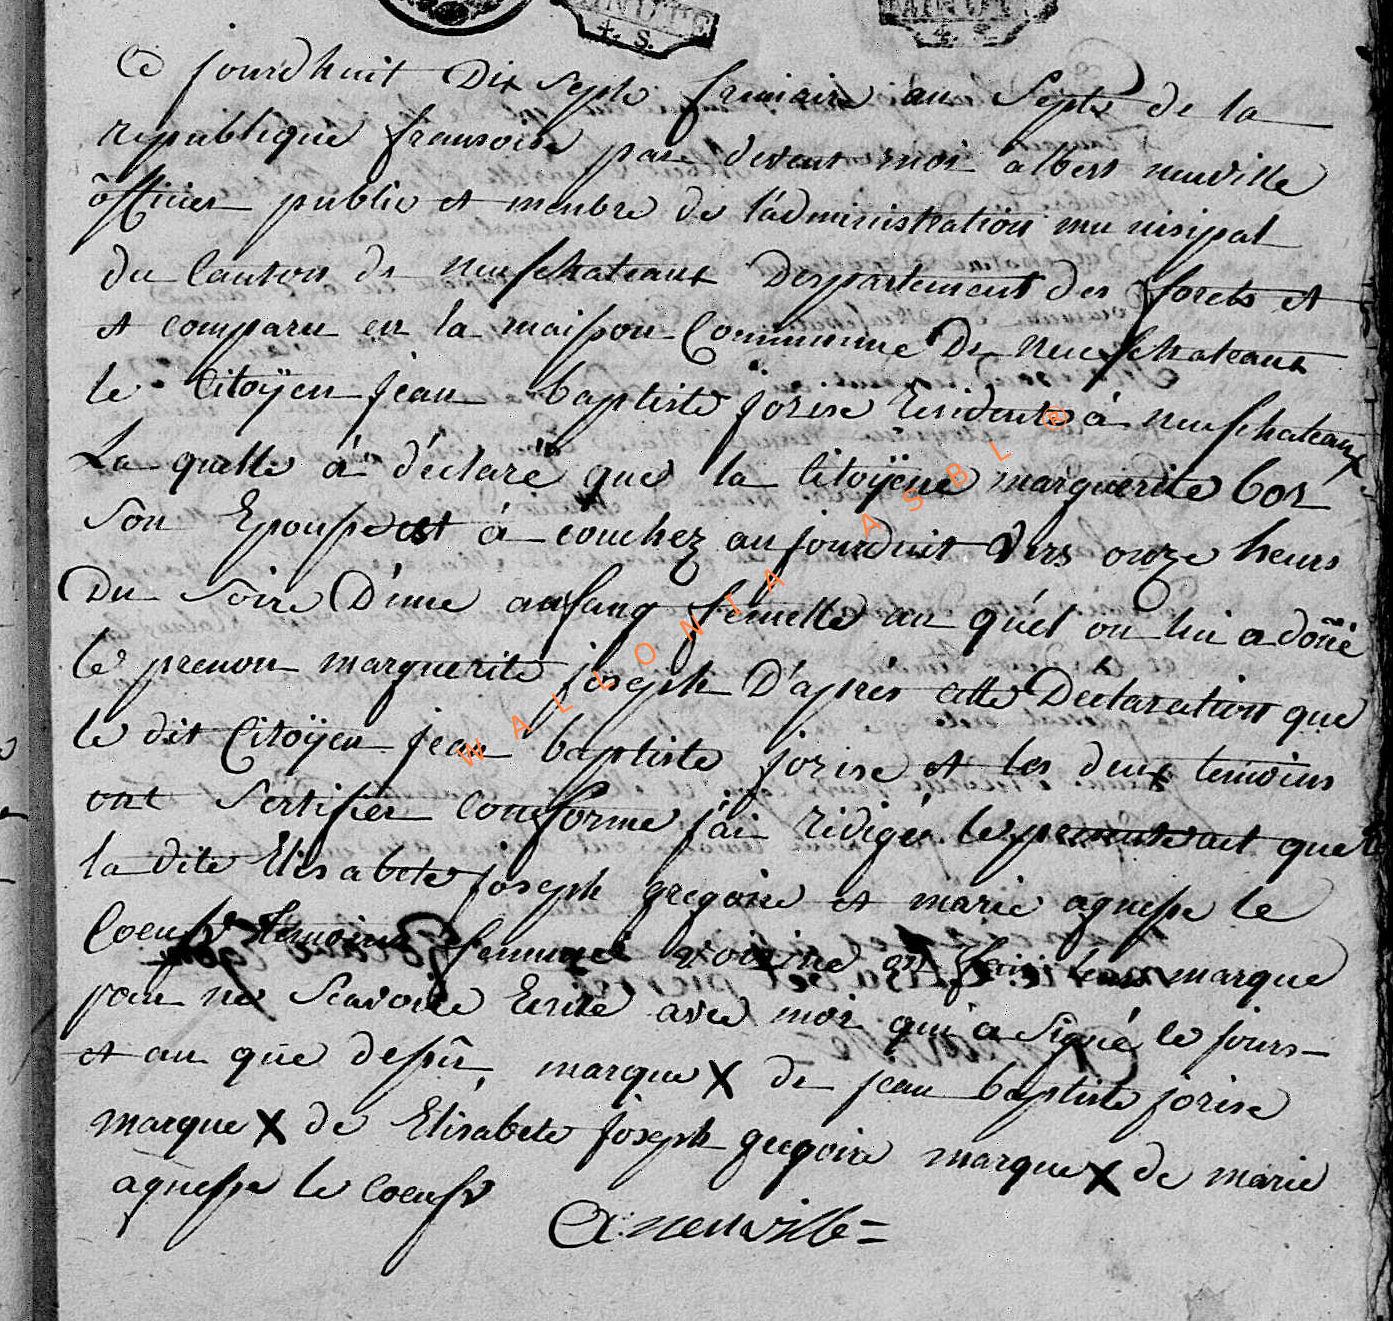 MINUTE
4. S.
MINUTE
4. S.
Ce jourdhuit Dix Septe frimaire an Septe de la
republique fransoise pare devent moi albert neuville
officier public et menbre de l'administration mu nisipal
du Canton de neufchateaux Despartement des forets et
et comparu en la maison Commune De neufchateaux
le Citoÿen jean baptiste jorise Residente à neufchateaux
La quelle á déclaré que la Citoÿene marguerite bos
Son Epouse est á couchez aujourduit vers onze heurs
Du Soire D'une anfang femelle au quél on lui a doñé
le prenon marguerite joseph D'aprés cette Declaration que
le dit Citoÿen jean baptiste jorise et les deux temoins
ont Sertifier conforme j'ai redigée le present act que
la dite Elisabete joseph gregoire et marie agnesse le
Coeuf temoins femmes voisine ont fait leur marque
pour ne Scavoire Ecrire avec moi qui a Signé le jours
et an que desu, marque X de jean baptiste jorise
marque X de Elisabete joseph gregoire marque X de marie
agnesse le coeuf
A: neuville =
WALLONIA ASBL ©